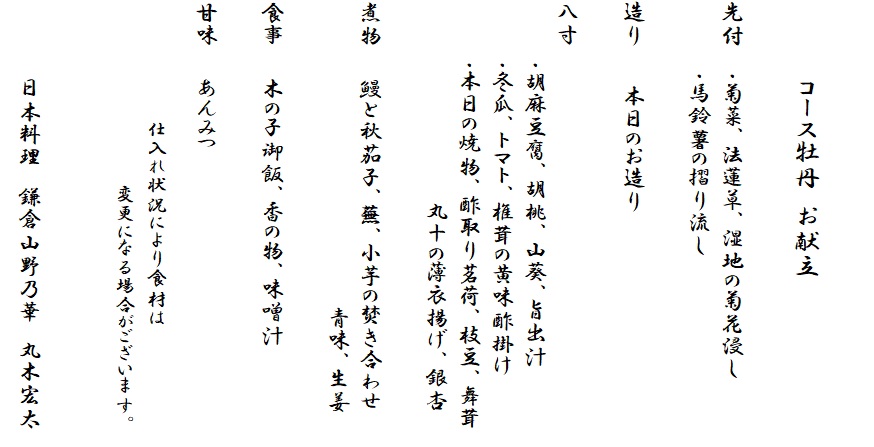 コース牡丹 お献立
先付 ・菊菜、法蓮草、湿地の菊花浸し
・馬鈴薯の摺り流し
造り 本日のお造り
八寸
・胡麻豆腐、胡桃、山葵、旨出汁
・冬瓜、トマト、椎茸の黄味酢掛け
・本日の焼物、酢取り茗荷、枝豆、舞茸
丸十の薄衣揚げ、銀杏
煮物 鰻と秋茄子、蕪、小芋の焚き合わせ
青味、生姜
食事 木の子御飯、香の物、味噌汁
甘味 あんみつ
仕入れ状況により食材は
変更になる場合がございます。
日本料理 鎌倉山野乃華 丸木宏太